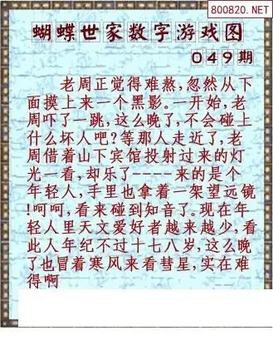 800820.NET
蝴蝶世家数字游戏图
049期
老周正觉得难熬,忽然从下
面摸上来一个黑影.一开始,老
周吓了一跳,这么晚了,不会碰上
什么坏人吧?等那人走近了,老
周借着山下宾馆投射过来的灯
光一看,却乐了----来的是个
年轻人,手里也拿着一架望远镜
!呵呵,看来碰到知音了.现在年
轻人里天文爱好者越来越少,看
此人年纪不过十七八岁,这么晚
了也冒着寒风来看彗星,实在难
得啊